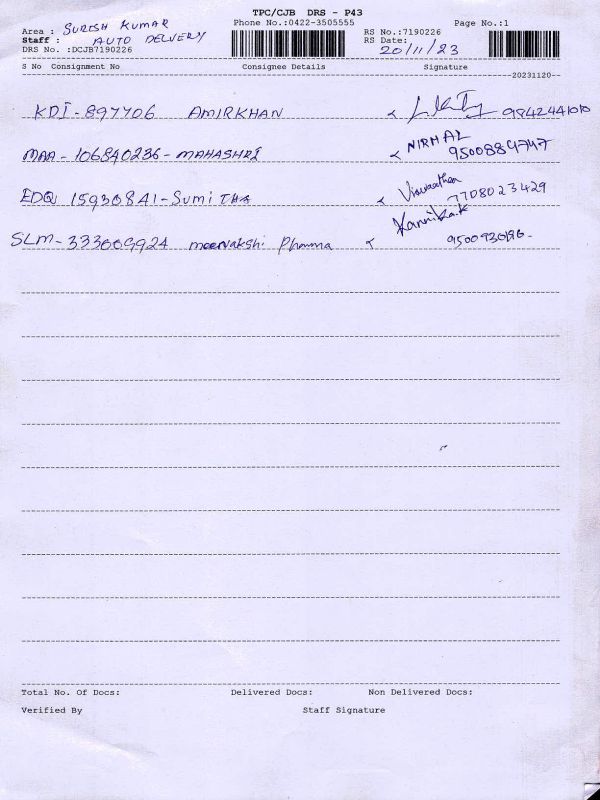 TPC/CJB DRS - P43
Area : SURESH KUMAR Phone No.:0422-3505555 Page No.:1
Staff : AUTO DELVERY RS No.:7190226
RS Date: 20/11/23
DRS No. :DCJB7190226
S No Consignment No Consignee Details Signature
--20231120--
KDI-897706 AMIRKHAN 9842441010
MAA-106840236-MAHASHRI NIRMAL 9500884747
EDQ 15930841-SumiTHA 7708023429
SLM-333009924 meenakshi Pharma 9500930196-
Total No. Of Docs: Delivered Docs: Non Delivered Docs:
Verified By Staff Signature